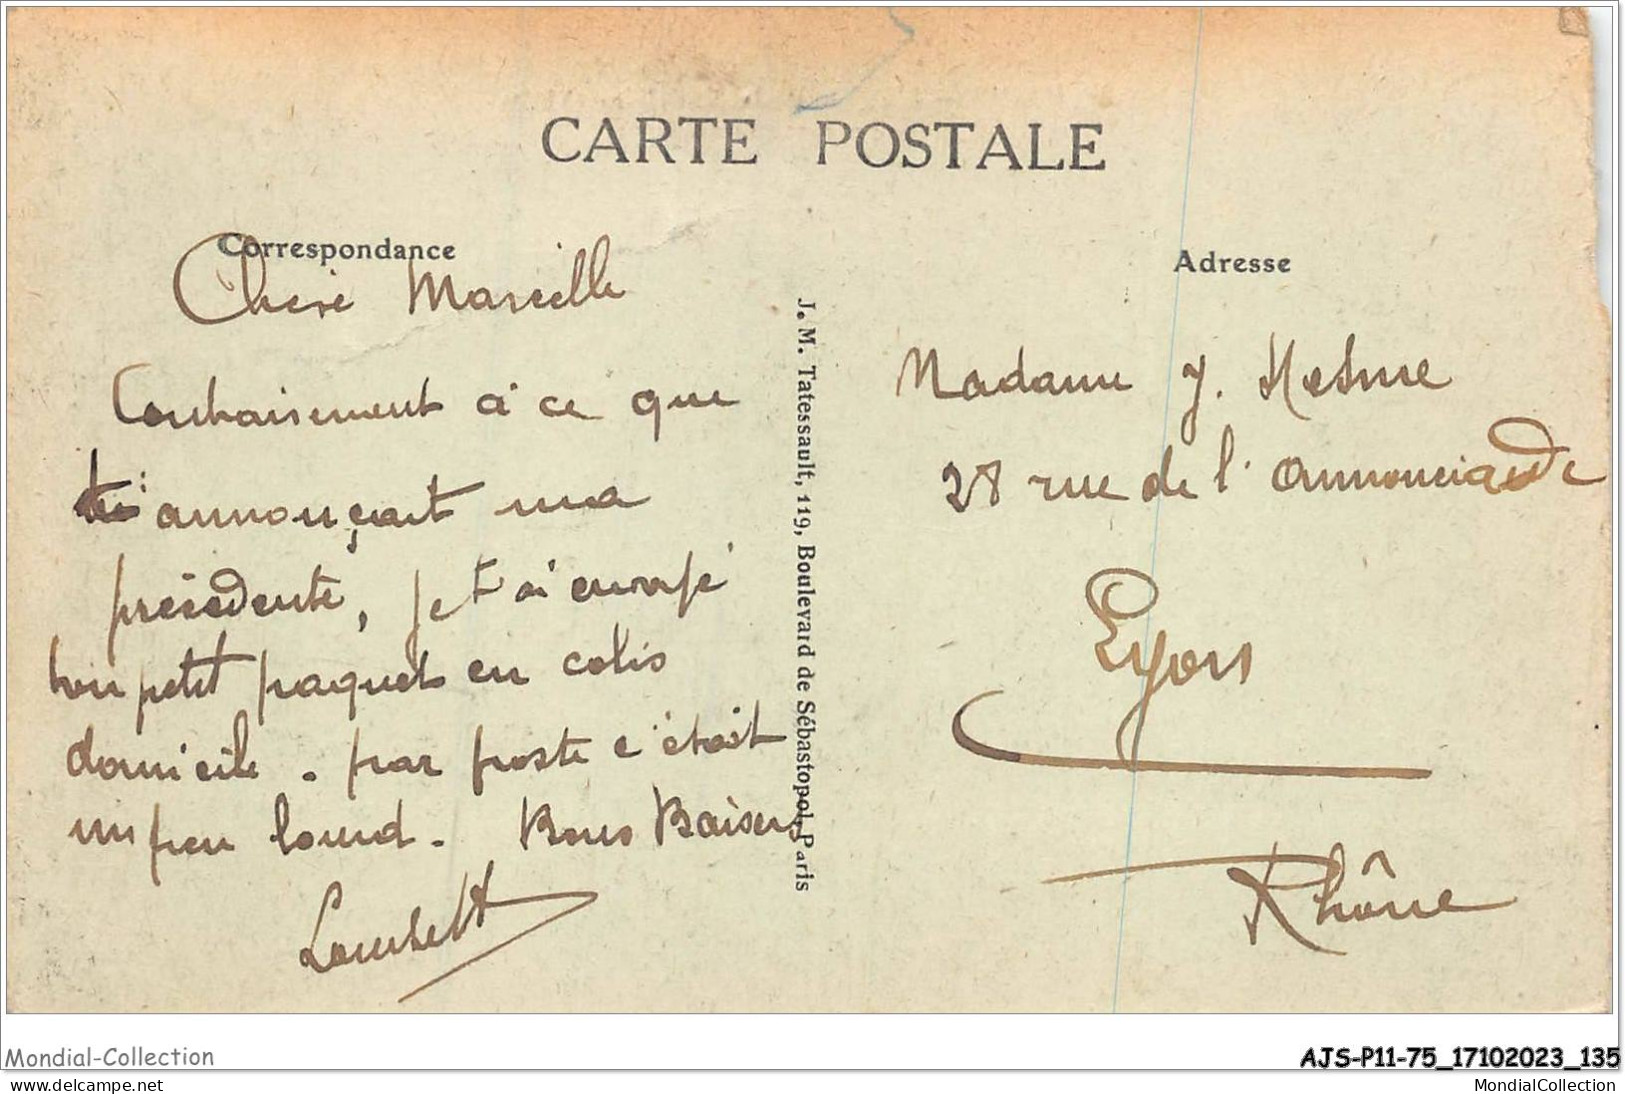 CARTE POSTALE
Correspondance
Chère Marcelle
Contrairement à ce que
t'annonçait ma
précédente, je t'ai envoyé
ton petit paquet en colis
domicile. par poste c'était
un peu lourd. Bons Baisers
J. M. Tatessault, 119, Boulevard de Sébastopol, Paris
Adresse
Madame J.
28 rue de l'annonciade
Lyon
Rhône
Mondial-Collection
AJS-P11-75_17102023_135
www.delcampe.net
MondialCollection